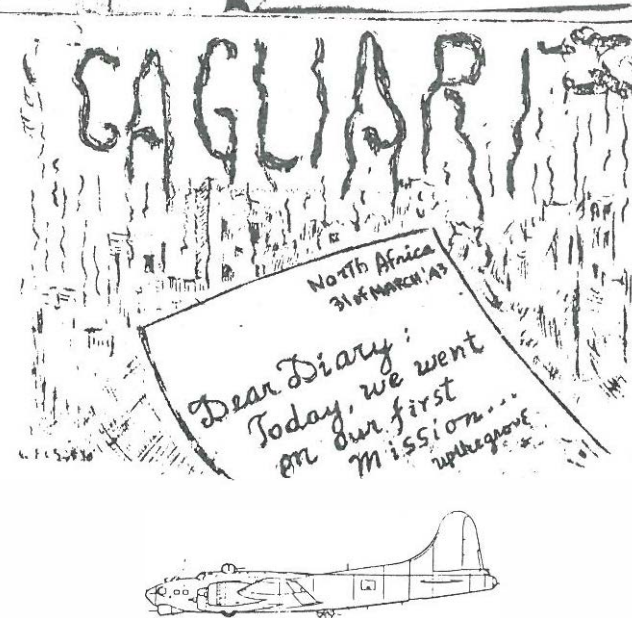 CAGLIARI
North Africa
31st MARCH '43
Dear Diary:
Today, we went
on our first
mission...
upthegrove